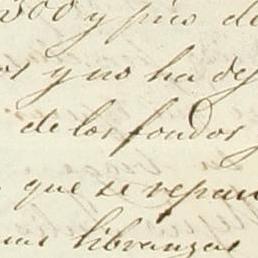 300 y pico de
y no ha de
de los fondos
que se repar
libranzas